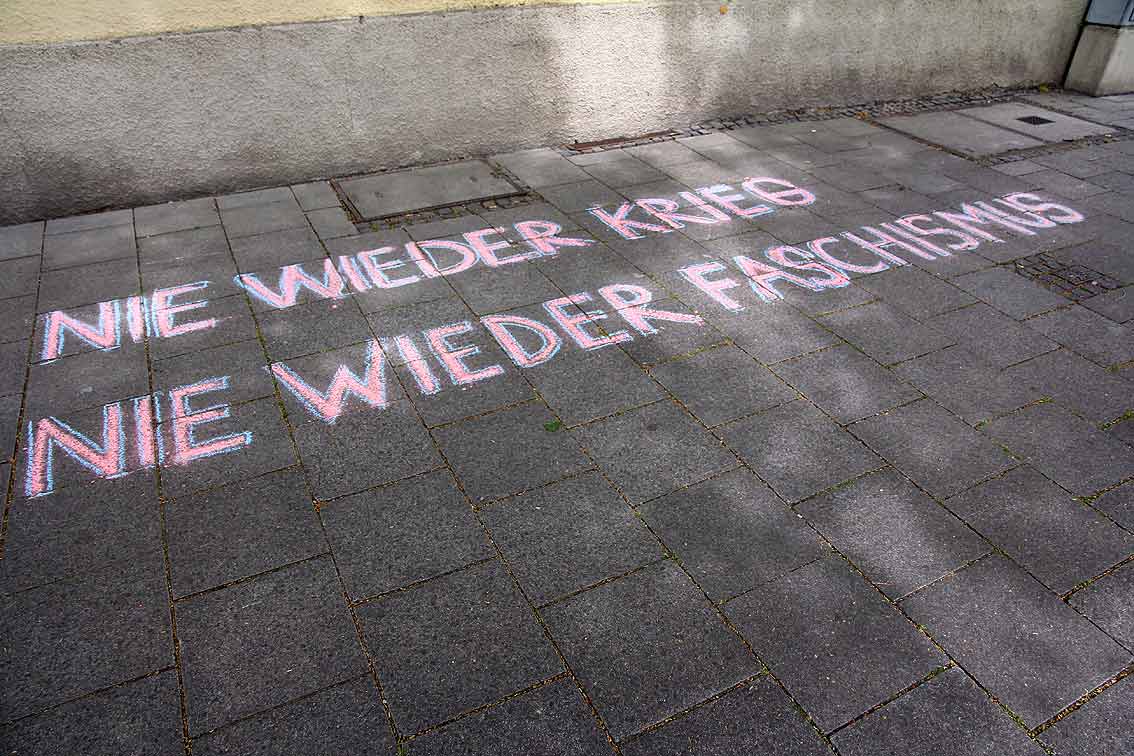 NIE WIEDER KRIEG
NIE WIEDER FASCHISMUS